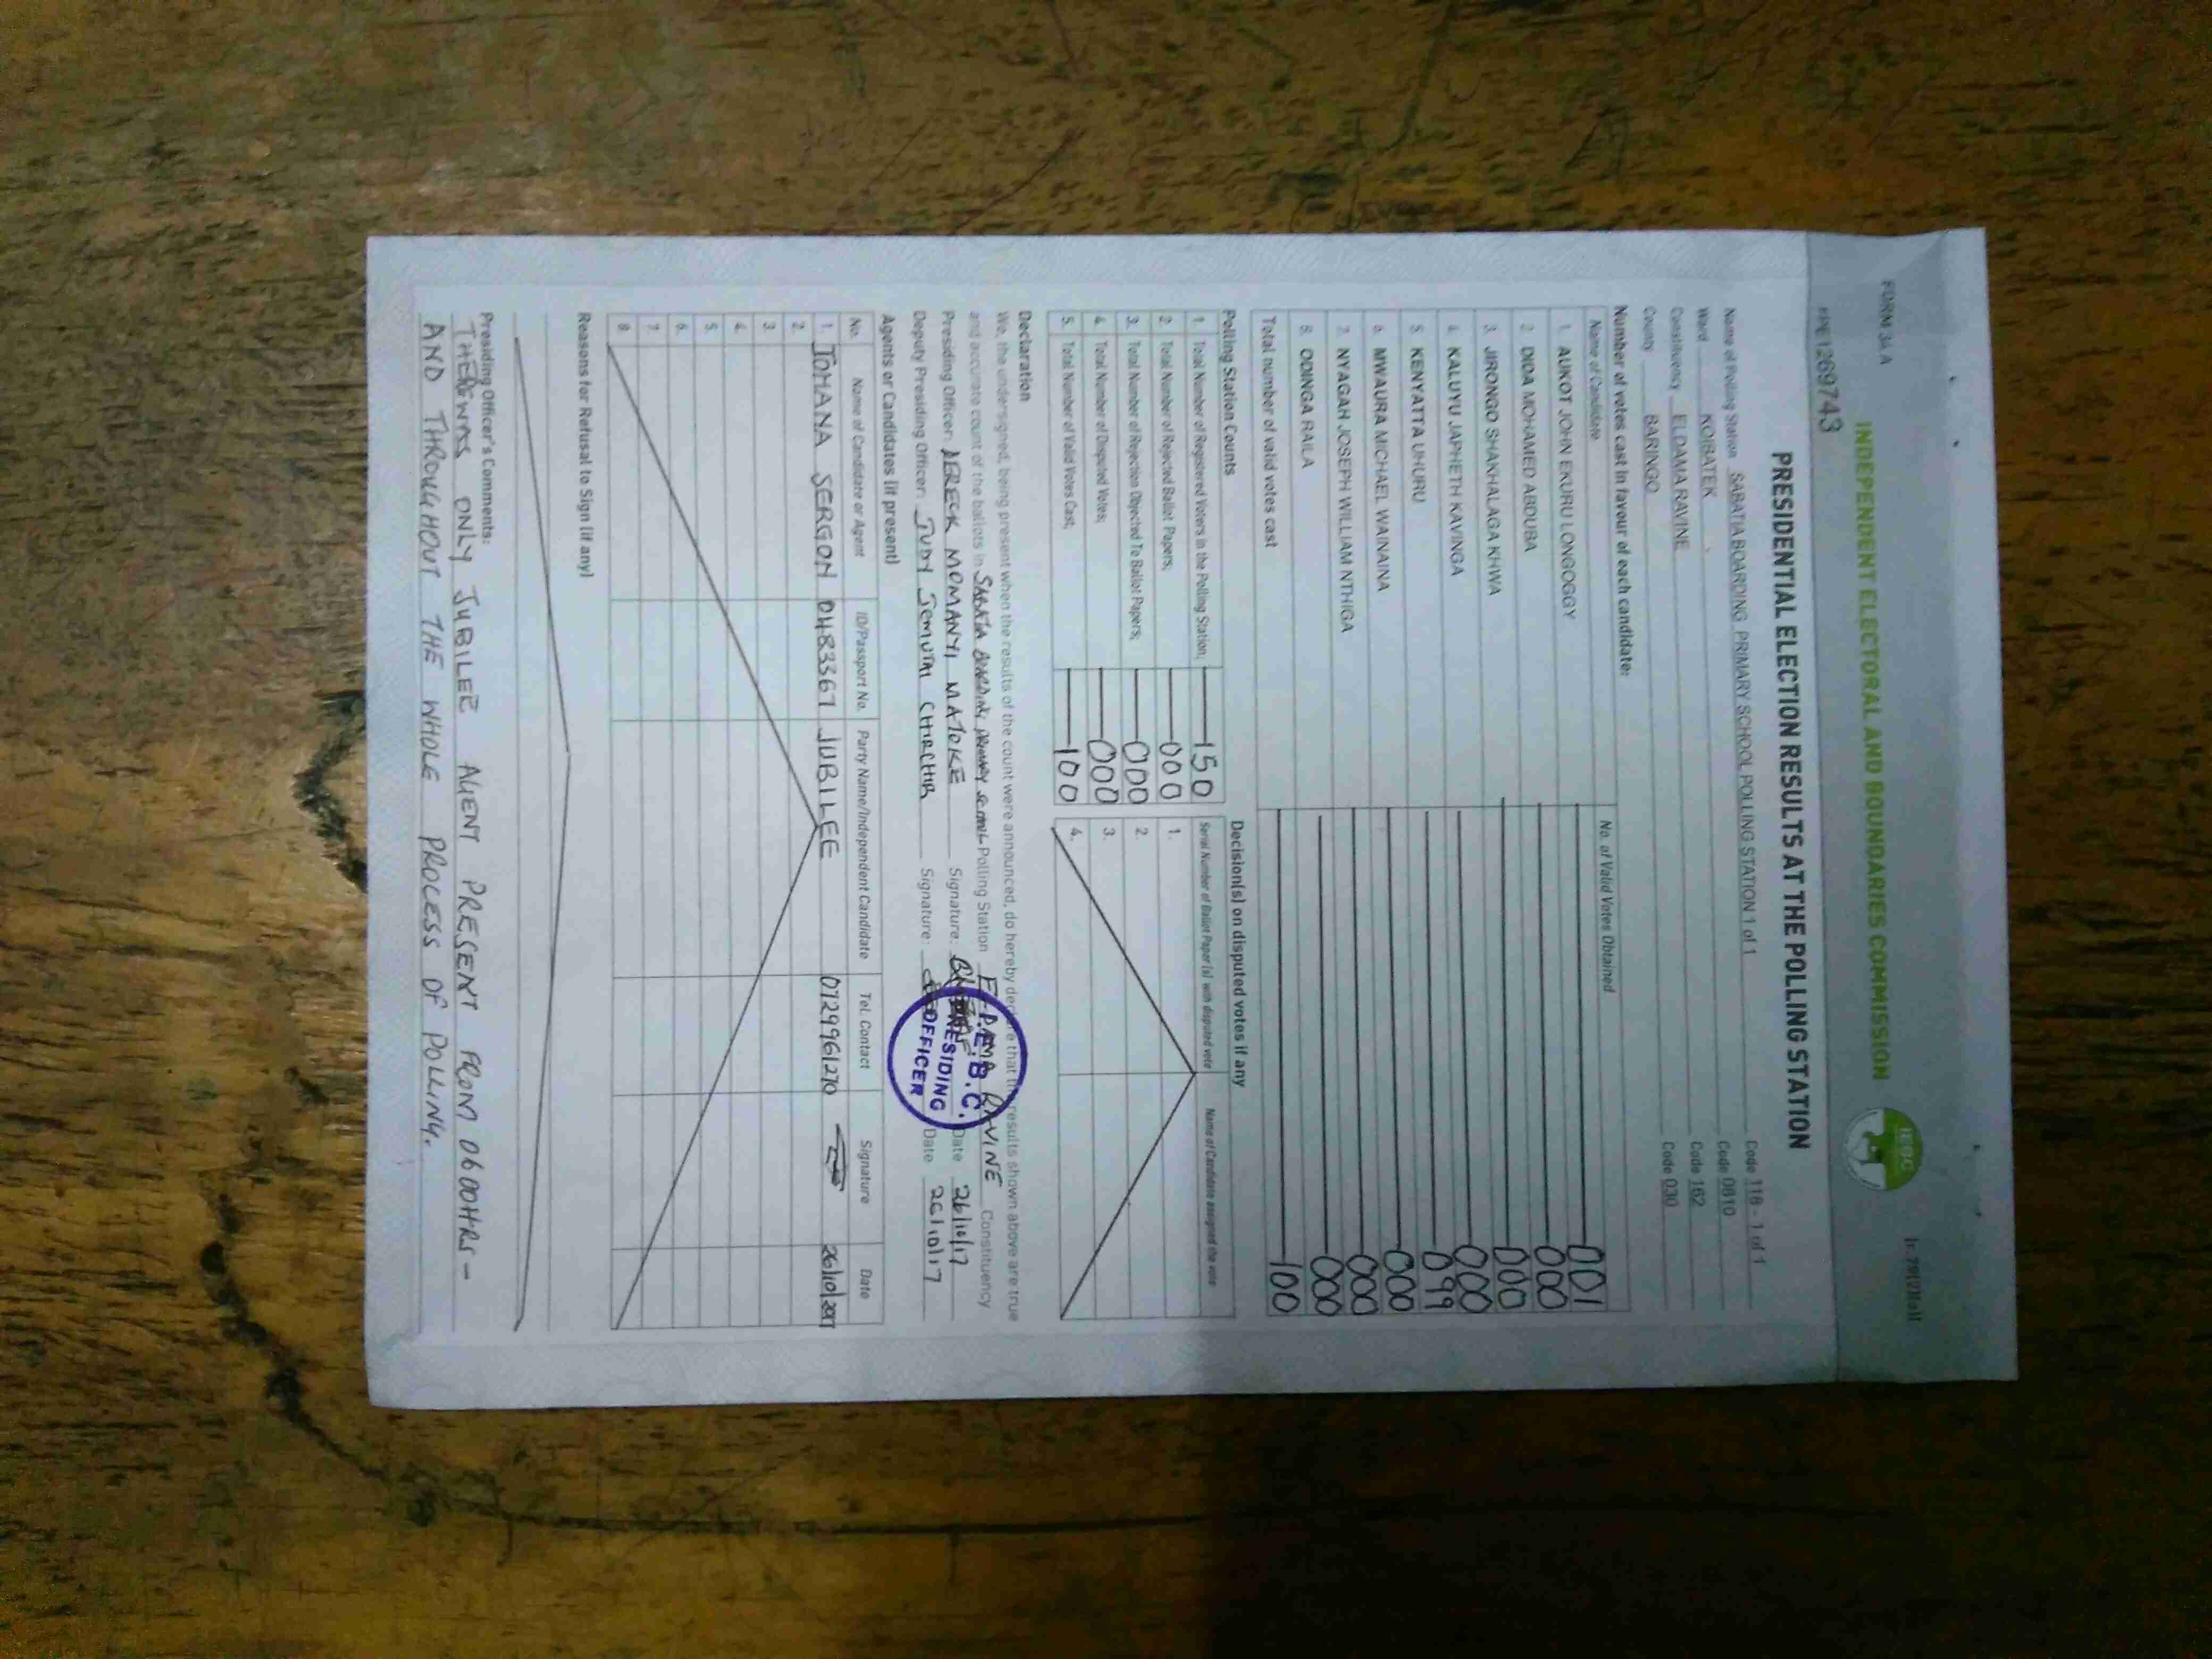 FORM 34 A
INDEPENDENT ELECTORAL AND BOUNDARIES COMMISSION
IEBC
PRESIDENTIAL ELECTION RESULTS AT THE POLLING STATION
Name of Polling Station SABATIA BOARDING PRIMARY SCHOOL POLLING STATION 1 of 1 Code 118 - 1 of 1
Ward KOIBATEK Code 0810
Constituency ELDAMA RAVINE Code 162
County BARINGO Code 030
Number of votes cast in favour of each candidate:
Name of Candidate No. of Valid Votes Obtained
1. AUKOT JOHN EKURU LONGOGGY 001
2. DIDA MOHAMED ABDUBA 000
3. JIRONGO SHAKHALAGA KHWA 000
4. KALUYU JAPHETH KAVINGA 000
5. KENYATTA UHURU 099
6. MWAURA MICHAEL WAINAINA 000
7. NYAGAH JOSEPH WILLIAM NTHIGA 000
8. ODINGA RAILA 000
Total number of valid votes cast 100
Polling Station Counts
1. Total Number of Registered Voters in the Polling Station; 150
2. Total Number of Rejected Ballot Papers; 000
3. Total Number of Rejection Objected To Ballot Papers; 000
4. Total Number of Disputed Votes; 000
5. Total Number of Valid Votes Cast; 100
Decision(s) on disputed votes if any
Serial Number of Ballot Paper (s) with disputed vote Name of Candidate assigned the vote
1.
2.
3.
4.
Declaration
We, the undersigned, being present when the results of the count were announced, do hereby declare that the results shown above are true
and accurate count of the ballots in SABATIA BOARDING PRIMARY SCHOOL Polling Station ELDAMA RAVINE Constituency
Presiding Officer: DERECK MOMANYI MATOKE Signature: Date 26/10/17
Deputy Presiding Officer: JUDY JEMUTAI CHIRCHIR Signature: Date 26/10/17
I.E.B.C.
PRESIDING
OFFICER
Agents or Candidates (if present)
No. Name of Candidate or Agent ID/Passport No. Party Name/Independent Candidate Tel. Contact Signature Date
1. JOHANA SERGON 0483367 JUBILEE 0729961270 26/10/2017
2.
3.
4.
5.
6.
7.
8.
Reasons for Refusal to Sign (if any)
Presiding Officer's Comments:
THERE WAS ONLY JUBILEE AGENT PRESENT FROM 0600HRS -
AND THROUGHOUT THE WHOLE PROCESS OF POLLING.